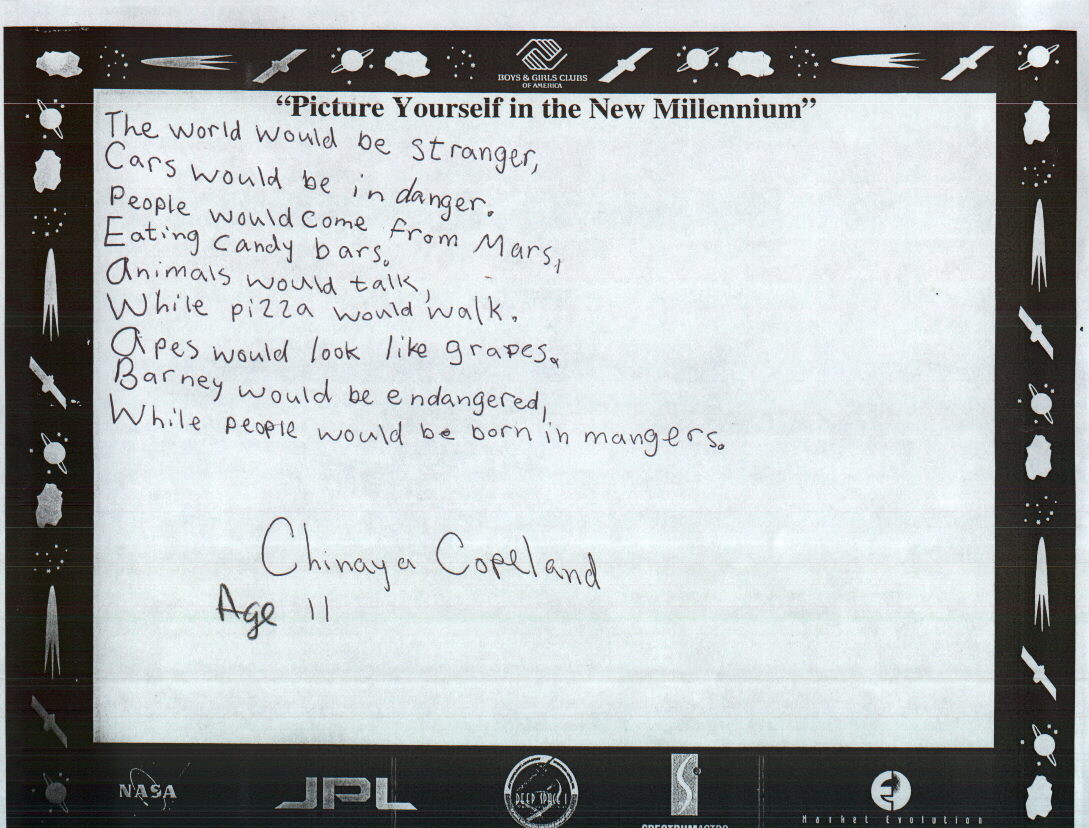 BOYS & GIRLS CLUBS
OF AMERICA
“Picture Yourself in the New Millennium”
The world would be stranger,
Cars would be in danger.
People would come from Mars,
Eating candy bars.
Animals would talk,
While pizza would walk.
Apes would look like grapes.
Barney would be endangered,
While people would be born in mangers.
Chinaya Copeland
Age 11
NASA
JPL
DEEP SPACE 1
SPECTRUMASTRO
Market Evolution